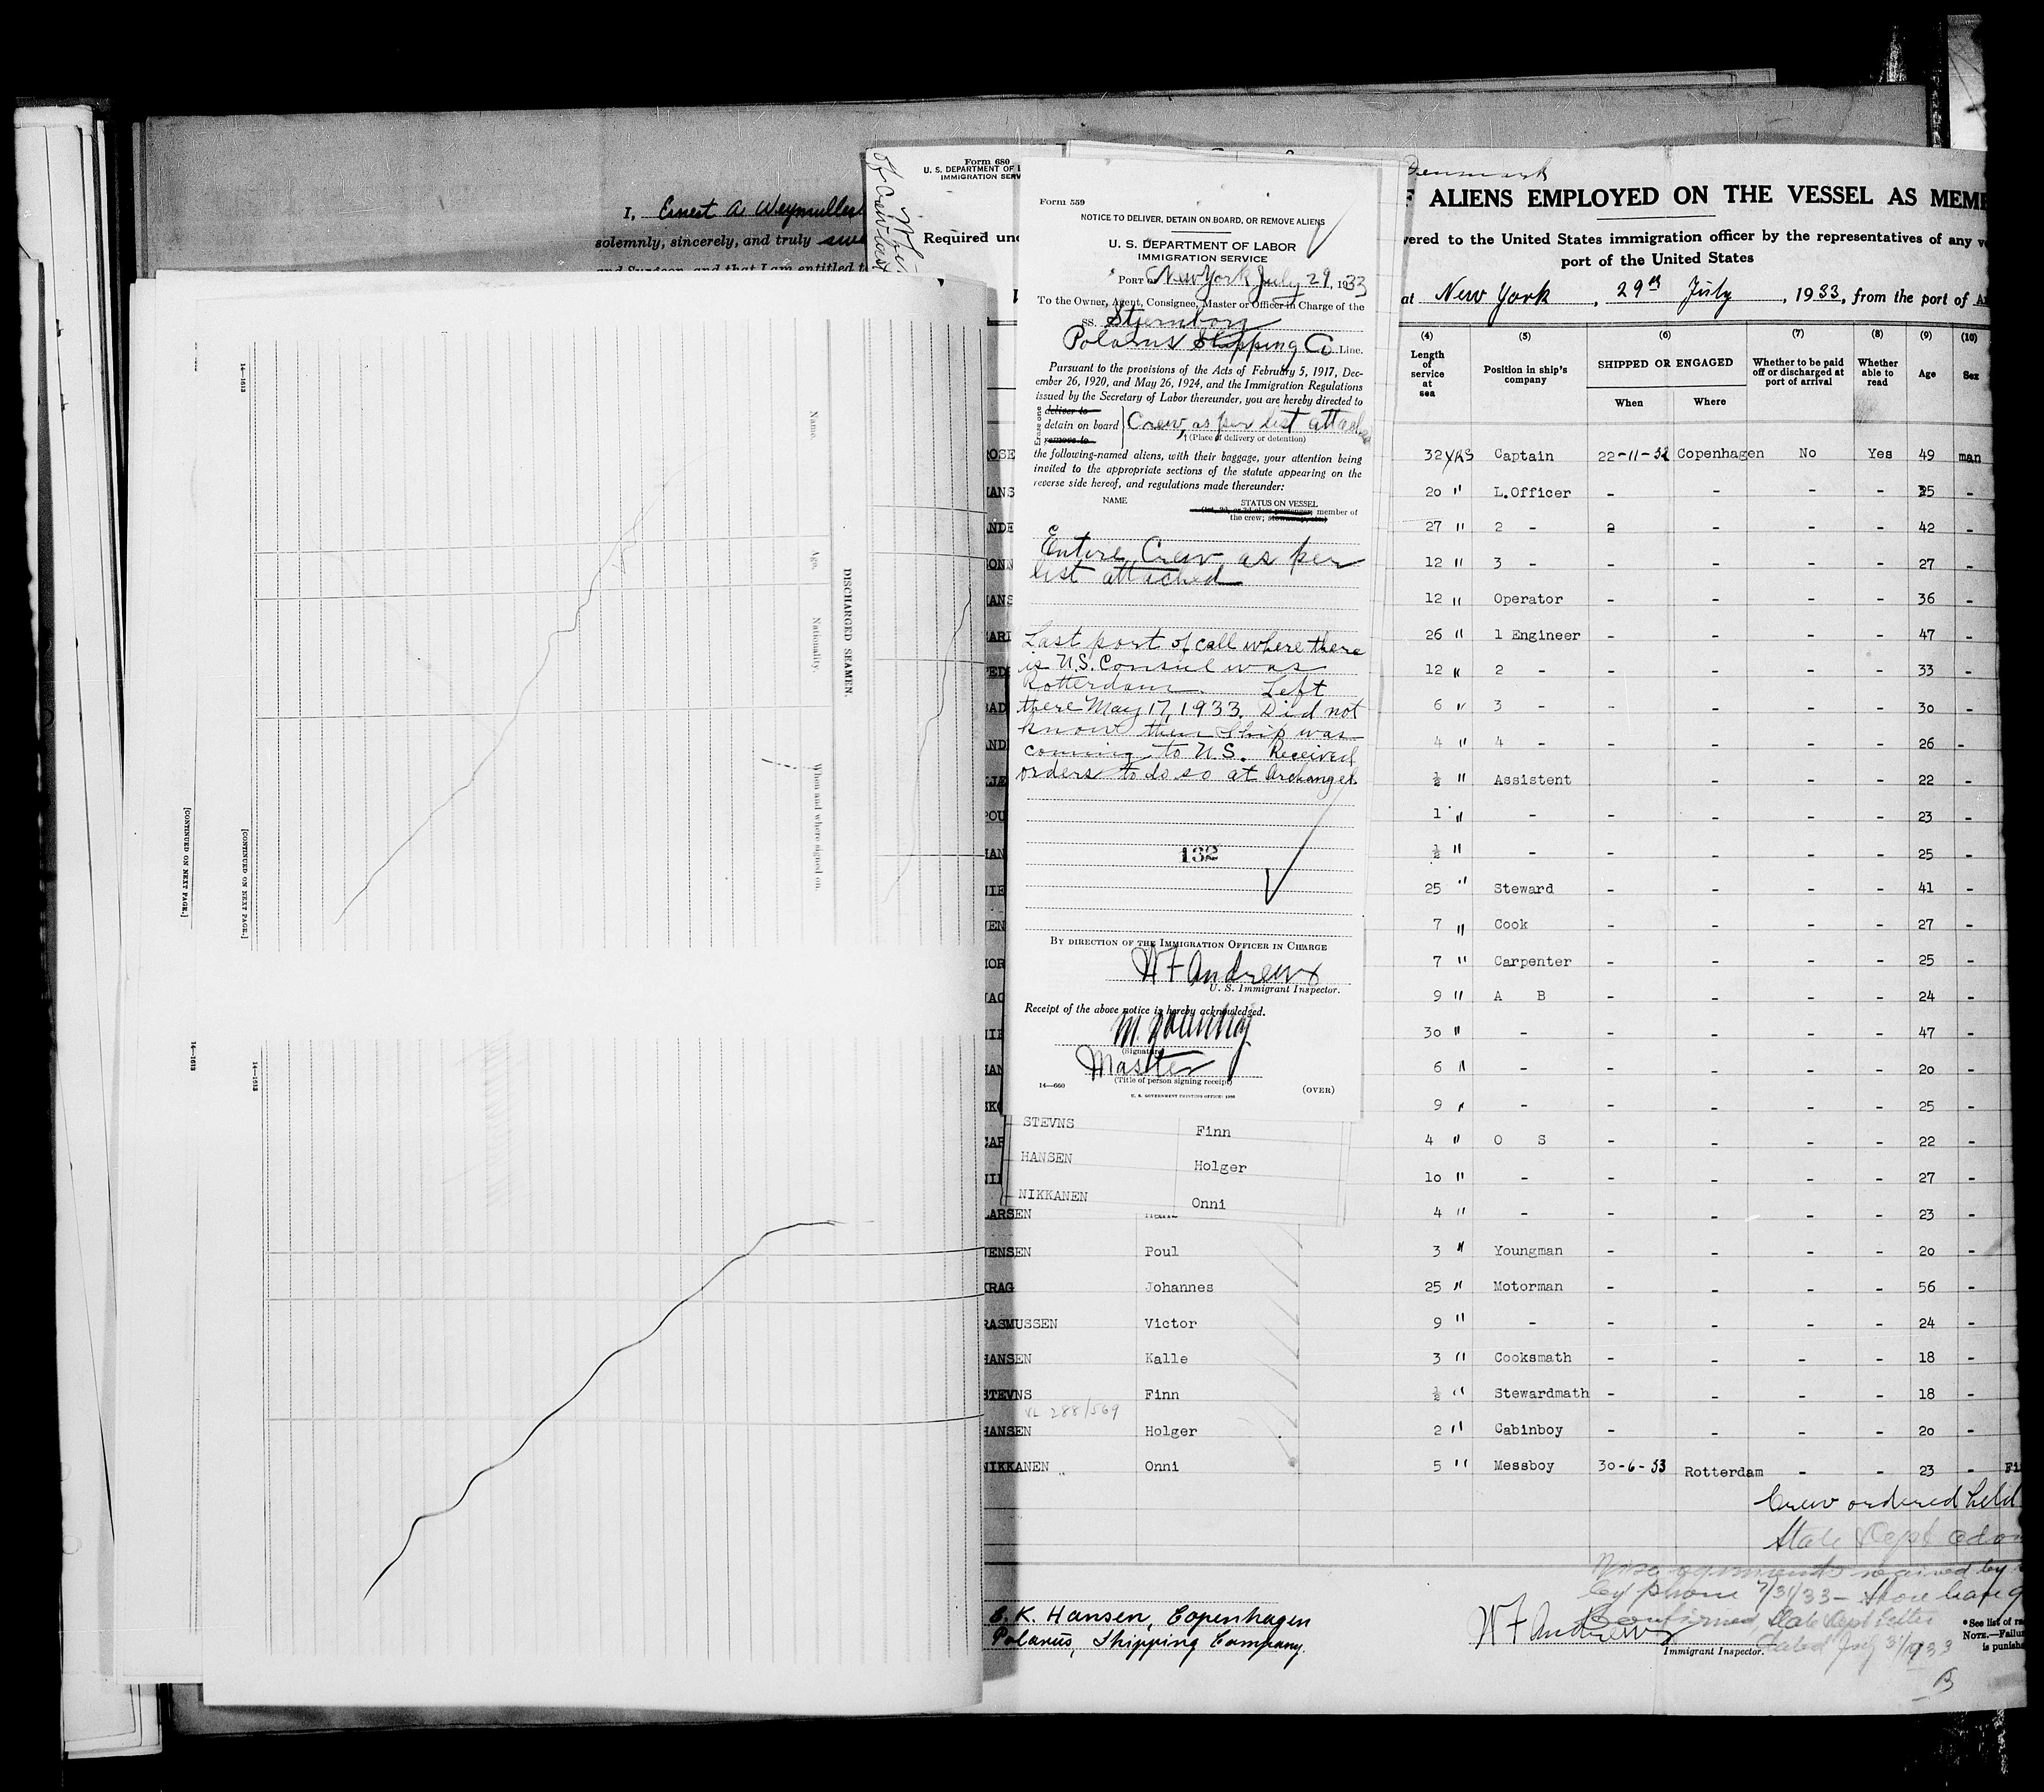 I, Ernest A Weymuller
solemnly, sincerely, and truly
of Crew List
Form 680
U. S. DEPARTMENT OF
IMMIGRATION SERV
Required un
14—1613
[CONTINUED ON NEXT PAGE.]
14—1613
[CONTINUED ON NEXT PAGE.]
Name.
Age.
Nationality.
When and where signed on.
DISCHARGED SEAMEN.
14—1613
14—1613
Form 559
NOTICE TO DELIVER, DETAIN ON BOARD, OR REMOVE ALIENS
U. S. DEPARTMENT OF LABOR
IMMIGRATION SERVICE
PORT OF New York July 29, 1933
To the Owner, Agent, Consignee, Master or Officer in Charge of the
SS. Stjernborg
Polarus Shipping Co Line.
Pursuant to the provisions of the Acts of February 5, 1917, Dec-
ember 26, 1920, and May 26, 1924, and the Immigration Regulations
issued by the Secretary of Labor thereunder, you are hereby directed to
Erase one
deliver to
detain on board
remove to
Crew, as per list attached
(Place of delivery or detention)
the following-named aliens, with their baggage, your attention being
invited to the appropriate sections of the statute appearing on the
reverse side hereof, and regulations made thereunder:
NAME STATUS ON VESSEL
(1st, 2d, or 3d class passenger; member of
the crew; stowaway, etc.)
Entire Crew, as per
list attached
Last port of call where there
is U.S. Consul was
Rotterdam. Left
there May 17, 1933. Did not
know then Ship was
coming to U.S. Received
orders to do so at Archangel.
132
BY DIRECTION OF THE IMMIGRATION OFFICER IN CHARGE
W F Andrews
U. S. Immigrant Inspector.
Receipt of the above notice is hereby acknowledged.
(Signature)
Master
(Title of person signing receipt)
14—660 (OVER)
U. S. GOVERNMENT PRINTING OFFICE: 1930
STEVNS Finn
HANSEN Holger
NIKKANEN Onni
Denmark
F ALIENS EMPLOYED ON THE VESSEL AS MEMB
vered to the United States immigration officer by the representatives of any v
port of the United States
at New York, 29th July, 1933, from the port of A
(4) (5) (6) (7) (8) (9) (10)
Length of service at sea Position in ship's company SHIPPED OR ENGAGED Whether to be paid off or discharged at port of arrival Whether able to read Age Sex
When Where
32 YRS Captain 22-11-32 Copenhagen No Yes 49 man
20 " L.Officer - - - - 35 -
27 " 2 - 2 - - - 42 -
12 " 3 - - - - - 27 -
12 " Operator - - - - 36 -
26 " 1 Engineer - - - - 47 -
12 " 2 - - - - - 33 -
6 " 3 - - - - - 30 -
4 " 4 - - - - - 26 -
½ " Assistent - - - 22 -
1 " - - - - - 23 -
½ " - - - - - 25 -
25 " Steward - - - - 41 -
7 " Cook - - - - 27 -
7 " Carpenter - - - - 25 -
9 " A B - - - - 24 -
30 " - - - - - 47 -
6 " - - - - - 20 -
9 " - - - - - 25 -
4 " O S - - - - 22 -
10 " - - - - - 27 -
LARSEN 4 " - - - - - 23 -
JENSEN Poul 3 " Youngman - - - - 20 -
KRAG Johannes 25 " Motorman - - - - 56 -
RASMUSSEN Victor 9 " - - - - - 24 -
HANSEN Kalle 3 " Cooksmath - - - - 18 -
STEVNS Finn ½ " Stewardmath - - - - 18 -
VL 288/569
HANSEN Holger 2 " Cabinboy - - - - 20 -
NIKKANEN Onni 5 " Messboy 30-6-33 Rotterdam - - 23 - Fi
Crew ordered held
State Dept
received by
by phone 7/31/33 - Shore leave
Confirmed, State Dept letter
dated July 31/1933
C. K. Hansen, Copenhagen
Polarus, Shipping Company.
W F Andrews
Immigrant Inspector.
*See list of ra
NOTE.—Failur
is punisha
B